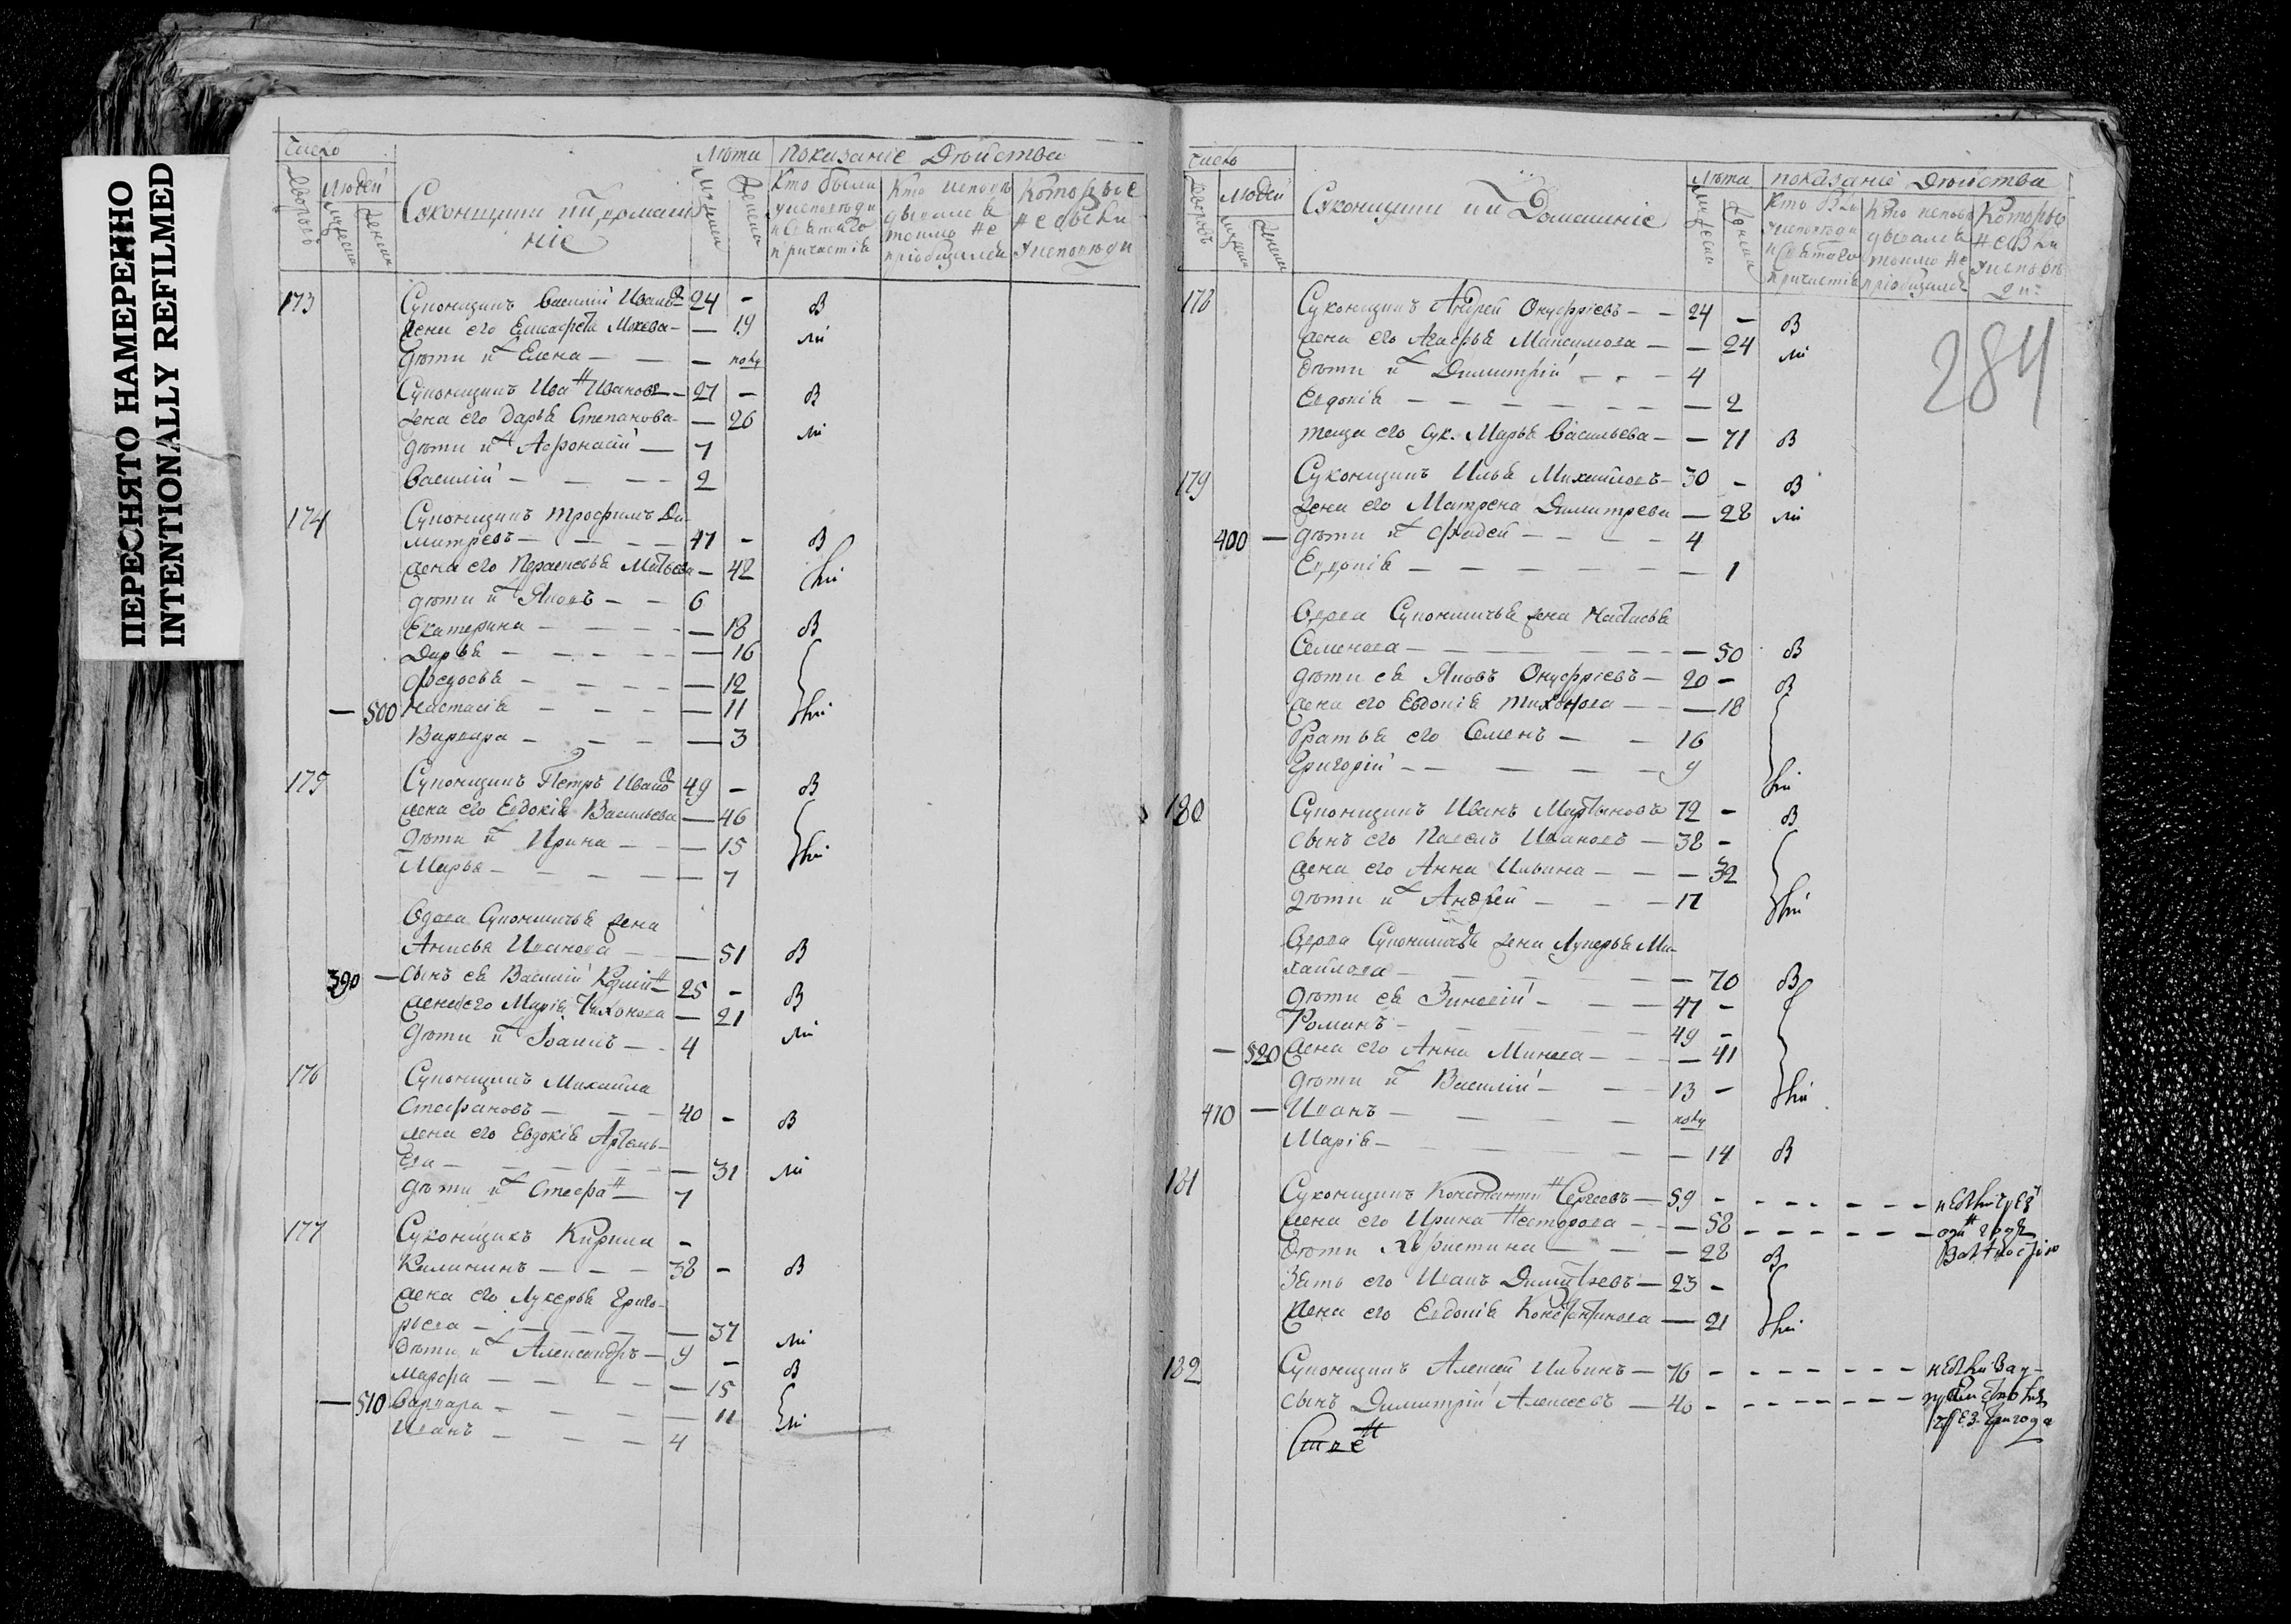 ПЕРЕСНЯТО НАМЕРЕННО
INTENTIONALLY REFILMED
число
Дворовъ
людей
мужеска
женска
Суконщики ии домаш
ніе
Лѣта
мужеска
женска
показаніе Действа
Кто были
у исповѣди
и Святаго
причастія
Кто исповѣ
дывался
токмо не
пріобщился
Которые
не были
у исповѣди
173
Суконщикъ Василій Иванов 24 - в
жена его Елисафета Михеева - - 19 ли
дѣти ихъ Елена - - - полу
Суконщикъ Иванъ Ивановъ - 27 - в
жена его Дарья Степанова - - 26 ли
дѣти ихъ Афонасій - 7
Василій - - - - 2
174
Суконщикъ Трофимъ Ди-
митріевъ - - - 47 - в
жена его Парасковья Матвева - 42 ли
дѣти ихъ Яковъ - - 6
Екатерина - - - - - 18 в
Дарья - - - - - - 16
Федосья - - - - - 12
- 500 Настасія - - - - 11 ли
Варвара - - - - 3
175
Суконщикъ Петръ Иванов 49 - в
жена его Евдокія Васильева - 46
дѣти ихъ Ирина - - - 15 ли
Марья - - - - - 7
Вдова Суконничья жена
Анисья Иванова - - 51 в
390 - сынъ ея Василій 25 - в
жена его Марія Тихонова - 21
дѣти ихъ Іоаннъ - - 4 ли
176
Суконщикъ Михайла
Стефановъ - - - 40 - в
жена его Евдокія Артемь-
ева - - - - - - 31 ли
дѣти ихъ Стефанъ - 7
177
Суконщикъ Кирила -
Калининъ - - - 38 - в
жена его Лукерья Григо-
рьева - - - - - 37 ли
дѣти ихъ Александръ - 9 - в
Марфа - - - - - 15
- 510 Варвара - - - - 11 ли
Иванъ - - - 4
число
Дворовъ
людей
мужеска
женска
Суконщики ии Домашніе
Лѣта
мужеска
женска
показаніе Действа
Кто были
у исповѣди
и Святаго
причастія
Кто исповѣ
дывался
токмо не
пріобщился
Которые
не были
у исповѣ
ди
284
178
Суконщикъ Андрей Онуфріевъ - - 24 - в
жена его Агафья Максимова - - 24 ли
дѣти ихъ Димитрій - - - 4
Евдокія - - - - - - - 2
теща его сук. Марья Васильева - - 71 в
179
Суконщикъ Илья Михайловъ - 30 - в
жена его Матрена Димитрева - 28 ли
400 - дѣти ихъ Фадей - - - - 4
Евдокія - - - - - - 1
Вдова Суконничья жена Настасья
Семенова - - - - - - 50 в
дѣти ея Яковъ Онуфріевъ - 20 - в
жена его Евдокія Тихонова - - - 18
братья его Семенъ - - 16
Григорій - - - - - 9 ли
180
Суконщикъ Иванъ Мартыновъ 72 - в
сынъ его Павелъ Ивановъ - 38 -
жена его Анна Ильина - - - 32
дѣти ихъ Андрей - - - 17 ли
Вдова Суконничья жена Лукерья Ми-
хайлова - - - - - 70 в
дѣти ея Зиновій - - - 47 -
Романъ - - - - 49 -
- 520 жена его Анна Минаева - - - - 41
дѣти ихъ Василій - - - 13 - ли
410 - Иванъ - - - - полу
Марія - - - - - 14 в
181
Суконщикъ Константинъ Сергеевъ - 59 - - - - - - - не были чрез
жена его Ирина Несторова - - - 58 - - - - - - - один годъ
дѣти Христина - - - 28 в
Зять его Иванъ Димитревъ - 23 -
жена его Евдокія Константинова - 21 ли
182
Суконщикъ Алексей Ильинъ - 76 - - - - - - - не были
сынъ Димитрій Алексеевъ - 40 - - - - - - -
чрез три года